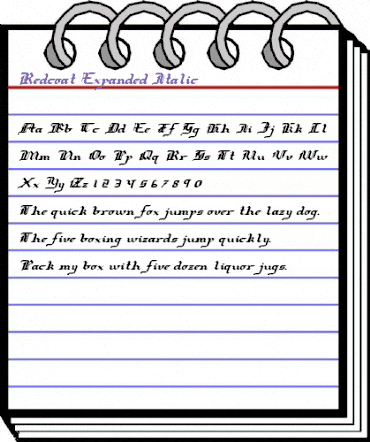 Redcoat Expanded Italic
Aa Bb Cc Dd Ee Ff Gg Hh Ii Jj Kk Ll
Mm Nn Oo Pp Qq Rr Ss Tt Uu Vv Ww
Xx Yy Zz 1 2 3 4 5 6 7 8 9 0
The quick brown fox jumps over the lazy dog.
The five boxing wizards jump quickly.
Pack my box with five dozen liquor jugs.